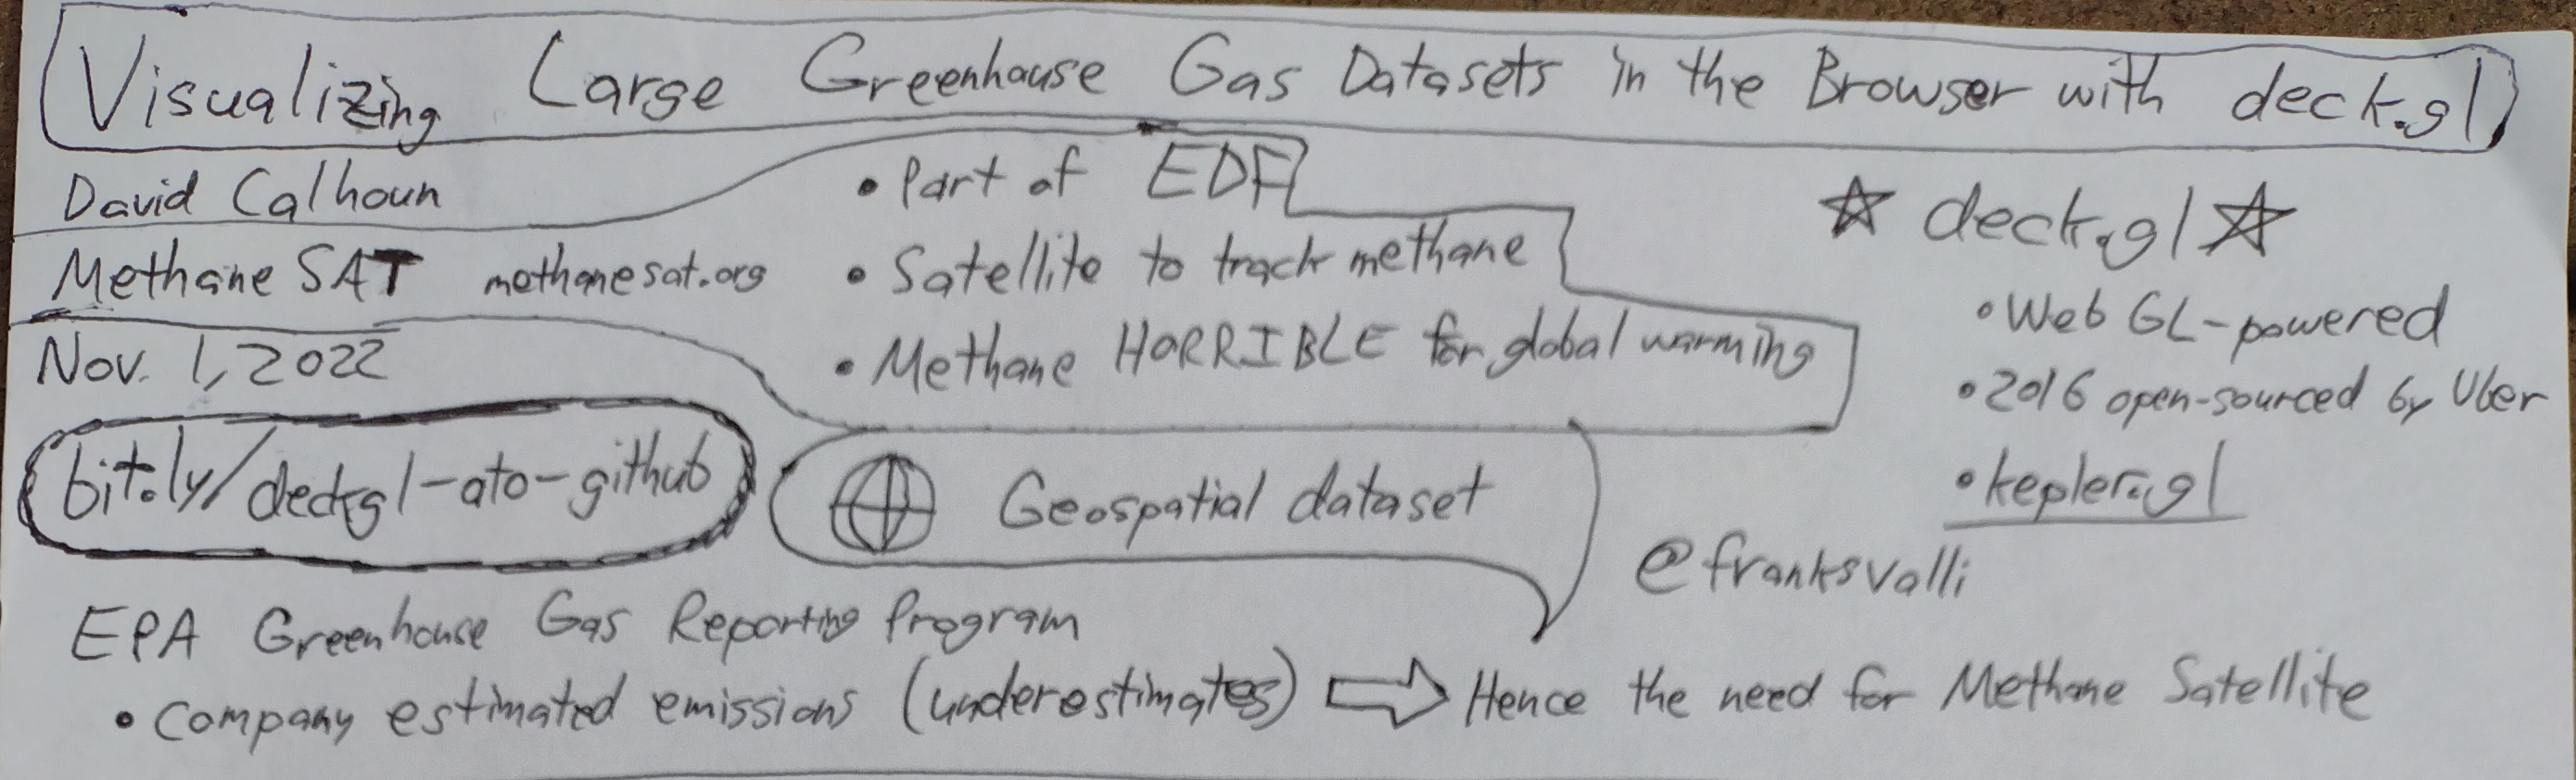 Visualizing Large Greenhouse Gas Datasets in the Browser with deck.gl
David Calhoun
Methane SAT methanesat.org
Nov. 1, 2022
bit.ly/deckgl-ato-github
• Part of EDF
• Satellite to track methane
• Methane HORRIBLE for global warming
Geospatial dataset
☆ deck.gl ☆
• Web GL-powered
• 2016 open-sourced by Uber
• kepler.gl
@franksvalli
EPA Greenhouse Gas Reporting Program
• Company estimated emissions (underestimates) ⇨ Hence the need for Methane Satellite